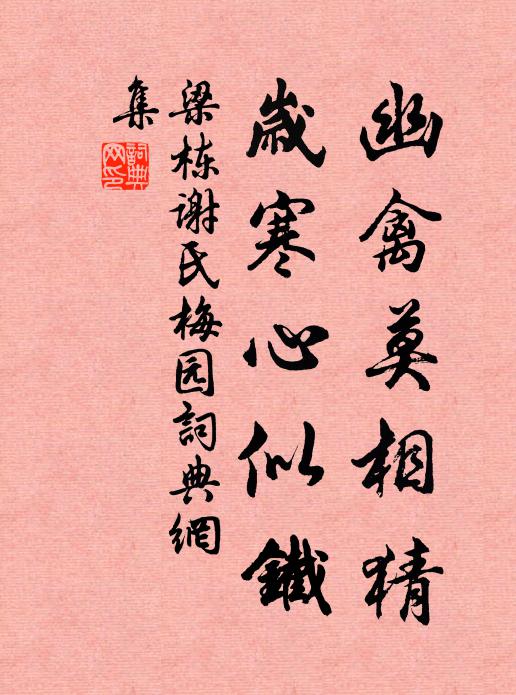 幽禽莫相猜
歲寒心似鐵
梁栋谢氏梅园詞典網
集
詞典网印